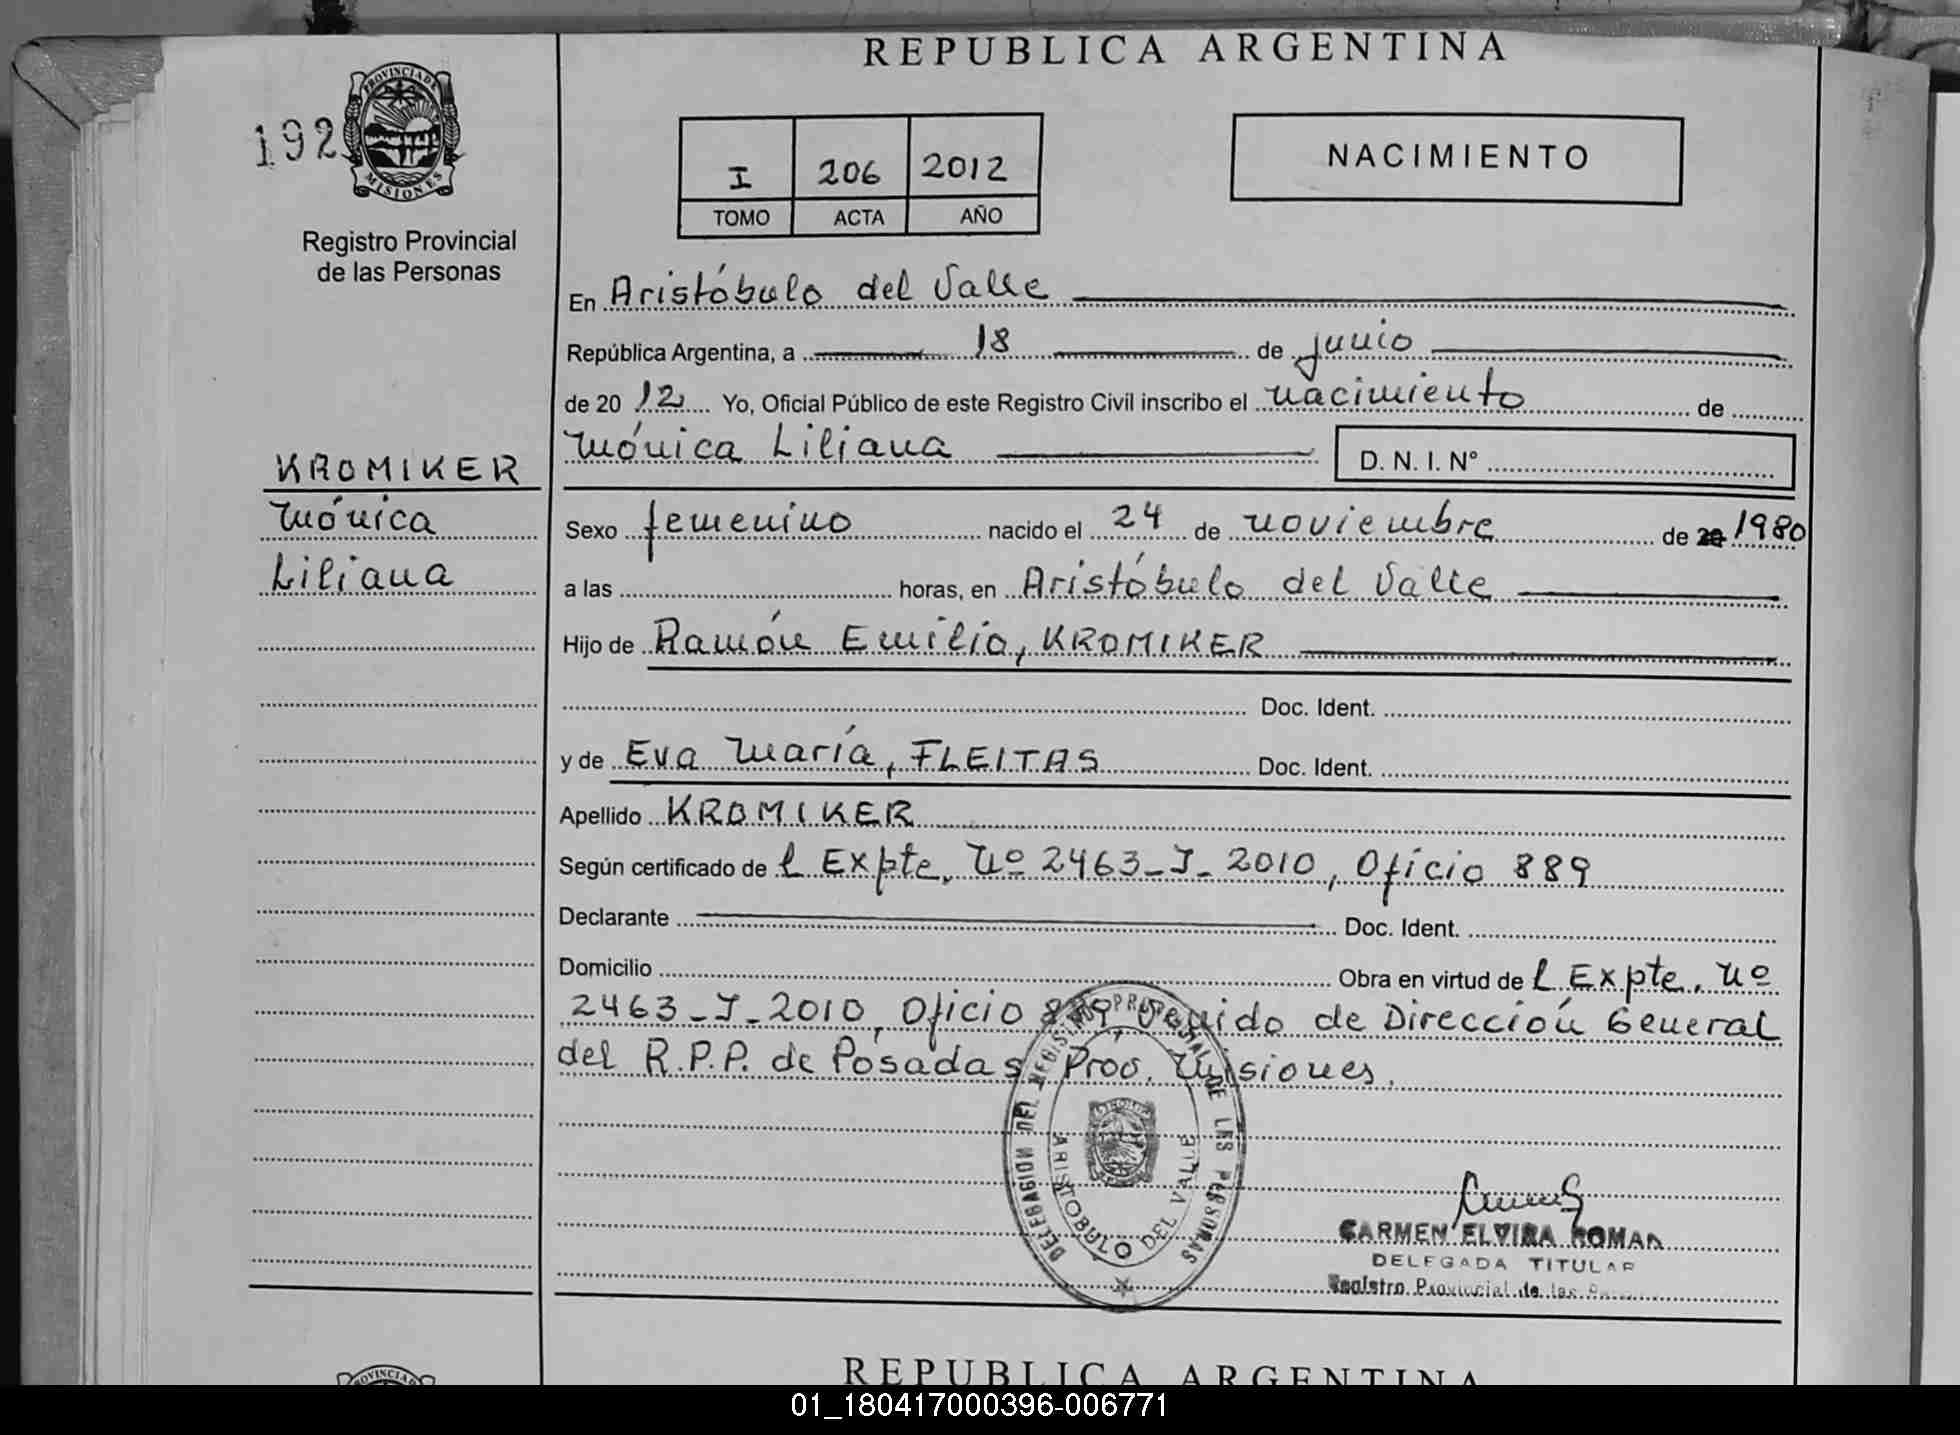 REPUBLICA ARGENTINA
PROVINCIA DE
MISIONES
192
Registro Provincial
de las Personas
I 206 2012
TOMO ACTA AÑO
NACIMIENTO
En Aristóbulo del Valle
República Argentina, a 18 de junio
de 2012 Yo, Oficial Público de este Registro Civil inscribo el nacimiento de
Mónica Liliana D. N. I. N°
KROMIKER
Mónica
Liliana
Sexo femenino nacido el 24 de noviembre de 20 1980
a las horas, en Aristóbulo del Valle
Hijo de Ramón Emilio, KROMIKER
Doc. Ident.
y de Eva María, FLEITAS Doc. Ident.
Apellido KROMIKER
Según certificado de l Expte. Nº 2463-J-2010, Oficio 889
Declarante Doc. Ident.
Domicilio Obra en virtud de l Expte. Nº
2463-J-2010, Oficio 889, Venido de Dirección General
del R.P.P. de Posadas Prov. Misiones.
DELEGACION DEL REGISTRO PROVINCIAL DE LAS PERSONAS
ARISTOBULO DEL VALLE
CARMEN ELVIRA ROMAN
DELEGADA TITULAR
Registro Provincial de las
REPUBLICA ARGENTINA
01_180417000396-006771